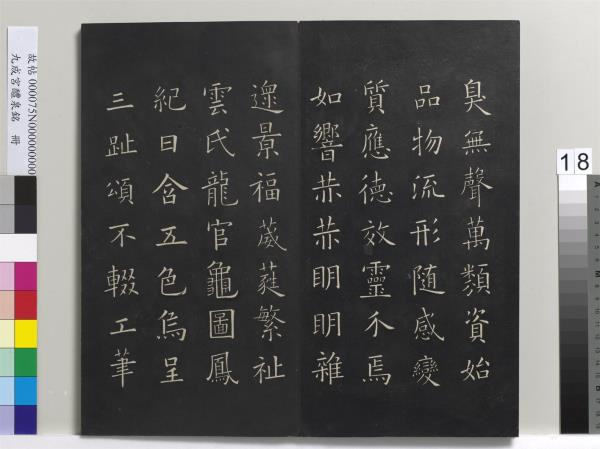 臭無聲萬類資始
品物流形随感變
質應德效靈不焉
如響赫赫明明雜
遝景福葳蕤繁祉
雲氏龍官龜圖鳳
紀日含五色烏呈
三趾頌不輟工筆
故帖 000075N000000000
九成宮醴泉銘 冊
18